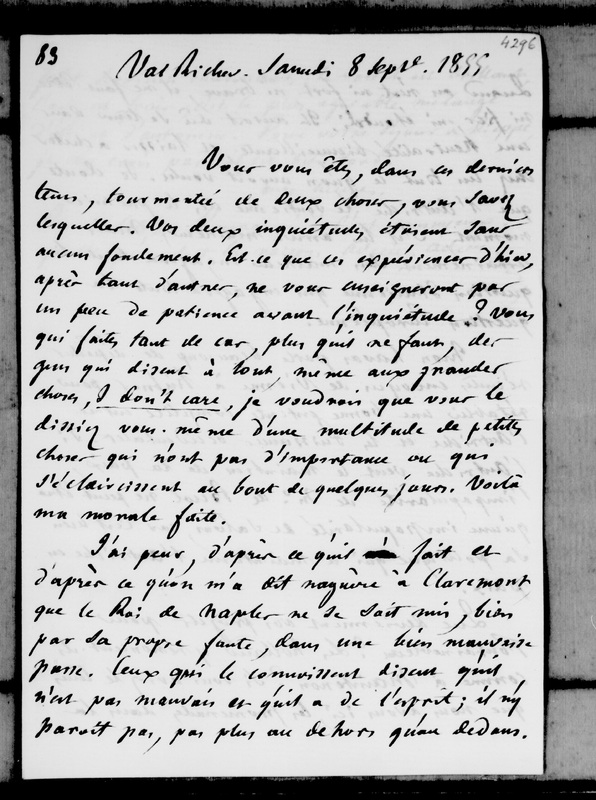 83
4296
Val Richer. Samedi 8 Septe. 1855
Vous vous êtes, dans ces derniers
tems, tourmentée de deux choses, vous savez
lesquelles. Vos deux inquiétudes étaient sans
aucun fondement. Est-ce que ces expériences d'hier,
après tant d'autres, ne vous enseigneront pas
un peu de patience avant l'inquiétude ? Vous
qui faites tant de cas, plus qu'il ne faut, des
gens qui disent à tout, même aux grandes
choses, I don't care, je voudrais que vous le
dissiez vous-même d'une multitude de petites
choses qui n'ont pas d'importance ou qui
s'éclaircissent au bout de quelques jours. Voilà
ma morale faite.
J'ai peur, d'après ce qu'il fait et
d'après ce qu'on m'a dit naguère à Claremont
que le Roi de Naples ne se soit mis, bien
par sa propre faute, dans une bien mauvaise
passe. Ceux qui le connoissent disent qu'il
n'est pas mauvais et qu'il a de l'esprit ; il n'y
paroît pas, pas plus au dehors qu'au dedans.